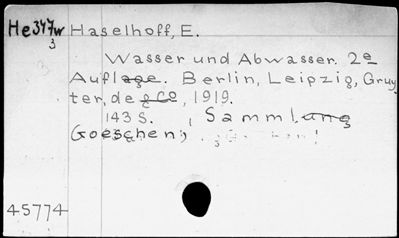 He347w Haselhoff, E.
3
Wasser und Abwasser. 2e
Auflage. Berlin, Leipzig, Gruy
ter, de & Co, 1919.
143 S. , Sammlung
Goeschen;
45774